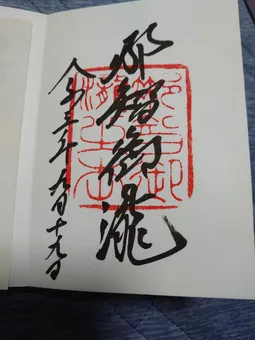 那智御瀧
令和三年 九月十九日